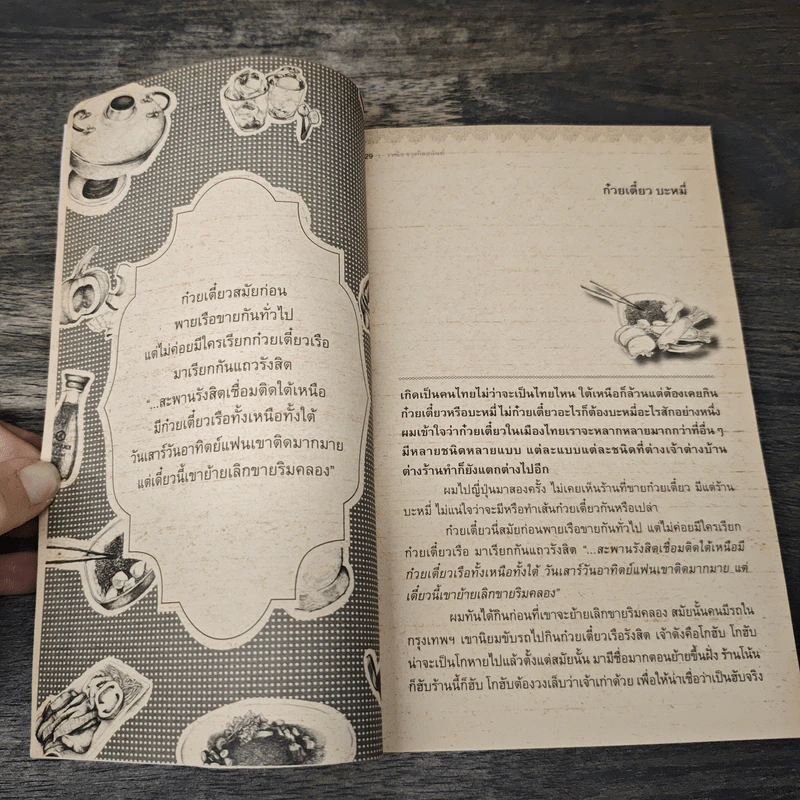 ก๋วยเตี๋ยวสมัยก่อน
พายเรือขายกันทั่วไป
แต่ไม่ค่อยมีใครเรียกก๋วยเตี๋ยวเรือ
มาเรียกกันแถวรังสิต
“...สะพานรังสิตเชื่อมติดใต้เหนือ
มีก๋วยเตี๋ยวเรือทั้งเหนือทั้งใต้
วันเสาร์วันอาทิตย์แฟนเขาติดมากมาย
แต่เดี๋ยวนี้เขาย้ายเลิกขายริมคลอง”
29
ก๋วยเตี๋ยว บะหมี่
เกิดเป็นคนไทยไม่ว่าจะเป็นไทยไหน ใต้เหนือก็ล้วนแต่ต้องเคยกิน
ก๋วยเตี๋ยวหรือบะหมี่ ไม่ก๋วยเตี๋ยวอะไรก็ต้องบะหมี่อะไรสักอย่างหนึ่ง
ผมเข้าใจว่าก๋วยเตี๋ยวในเมืองไทยเราจะหลากหลายมากกว่าที่อื่น ๆ
มีหลายชนิดหลายแบบ แต่ละแบบแต่ละชนิดที่ต่างเจ้าต่างบ้าน
ต่างร้านทำก็ยังแตกต่างไปอีก
ผมไปญี่ปุ่นมาสองครั้ง ไม่เคยเห็นร้านที่ขายก๋วยเตี๋ยว มีแต่ร้าน
บะหมี่ ไม่แน่ใจว่าจะมีหรือทำเส้นก๋วยเตี๋ยวกันหรือเปล่า
ก๋วยเตี๋ยวนี่สมัยก่อนพายเรือขายกันทั่วไป แต่ไม่ค่อยมีใครเรียก
ก๋วยเตี๋ยวเรือ มาเรียกกันแถวรังสิต “...สะพานรังสิตเชื่อมติดใต้เหนือมี
ก๋วยเตี๋ยวเรือทั้งเหนือทั้งใต้ วันเสาร์วันอาทิตย์แฟนเขาติดมากมาย แต่
เดี๋ยวนี้เขาย้ายเลิกขายริมคลอง”
ผมทันได้กินก่อนที่เขาจะย้ายเลิกขายริมคลอง สมัยนั้นคนมีรถใน
กรุงเทพฯ เขานิยมขับรถไปกินก๋วยเตี๋ยวเรือรังสิต เจ้าดังคือโกฮับ โกฮับ
น่าจะเป็นโกหายไปแล้วตั้งแต่สมัยนั้น มามีชื่อมากตอนย้ายขึ้นฝั่ง ร้านโน้น
ก็ฮับร้านนี้ก็ฮับ โกฮับต้องวงเล็บว่าเจ้าเก่าด้วย เพื่อให้น่าเชื่อว่าเป็นฮับจริง